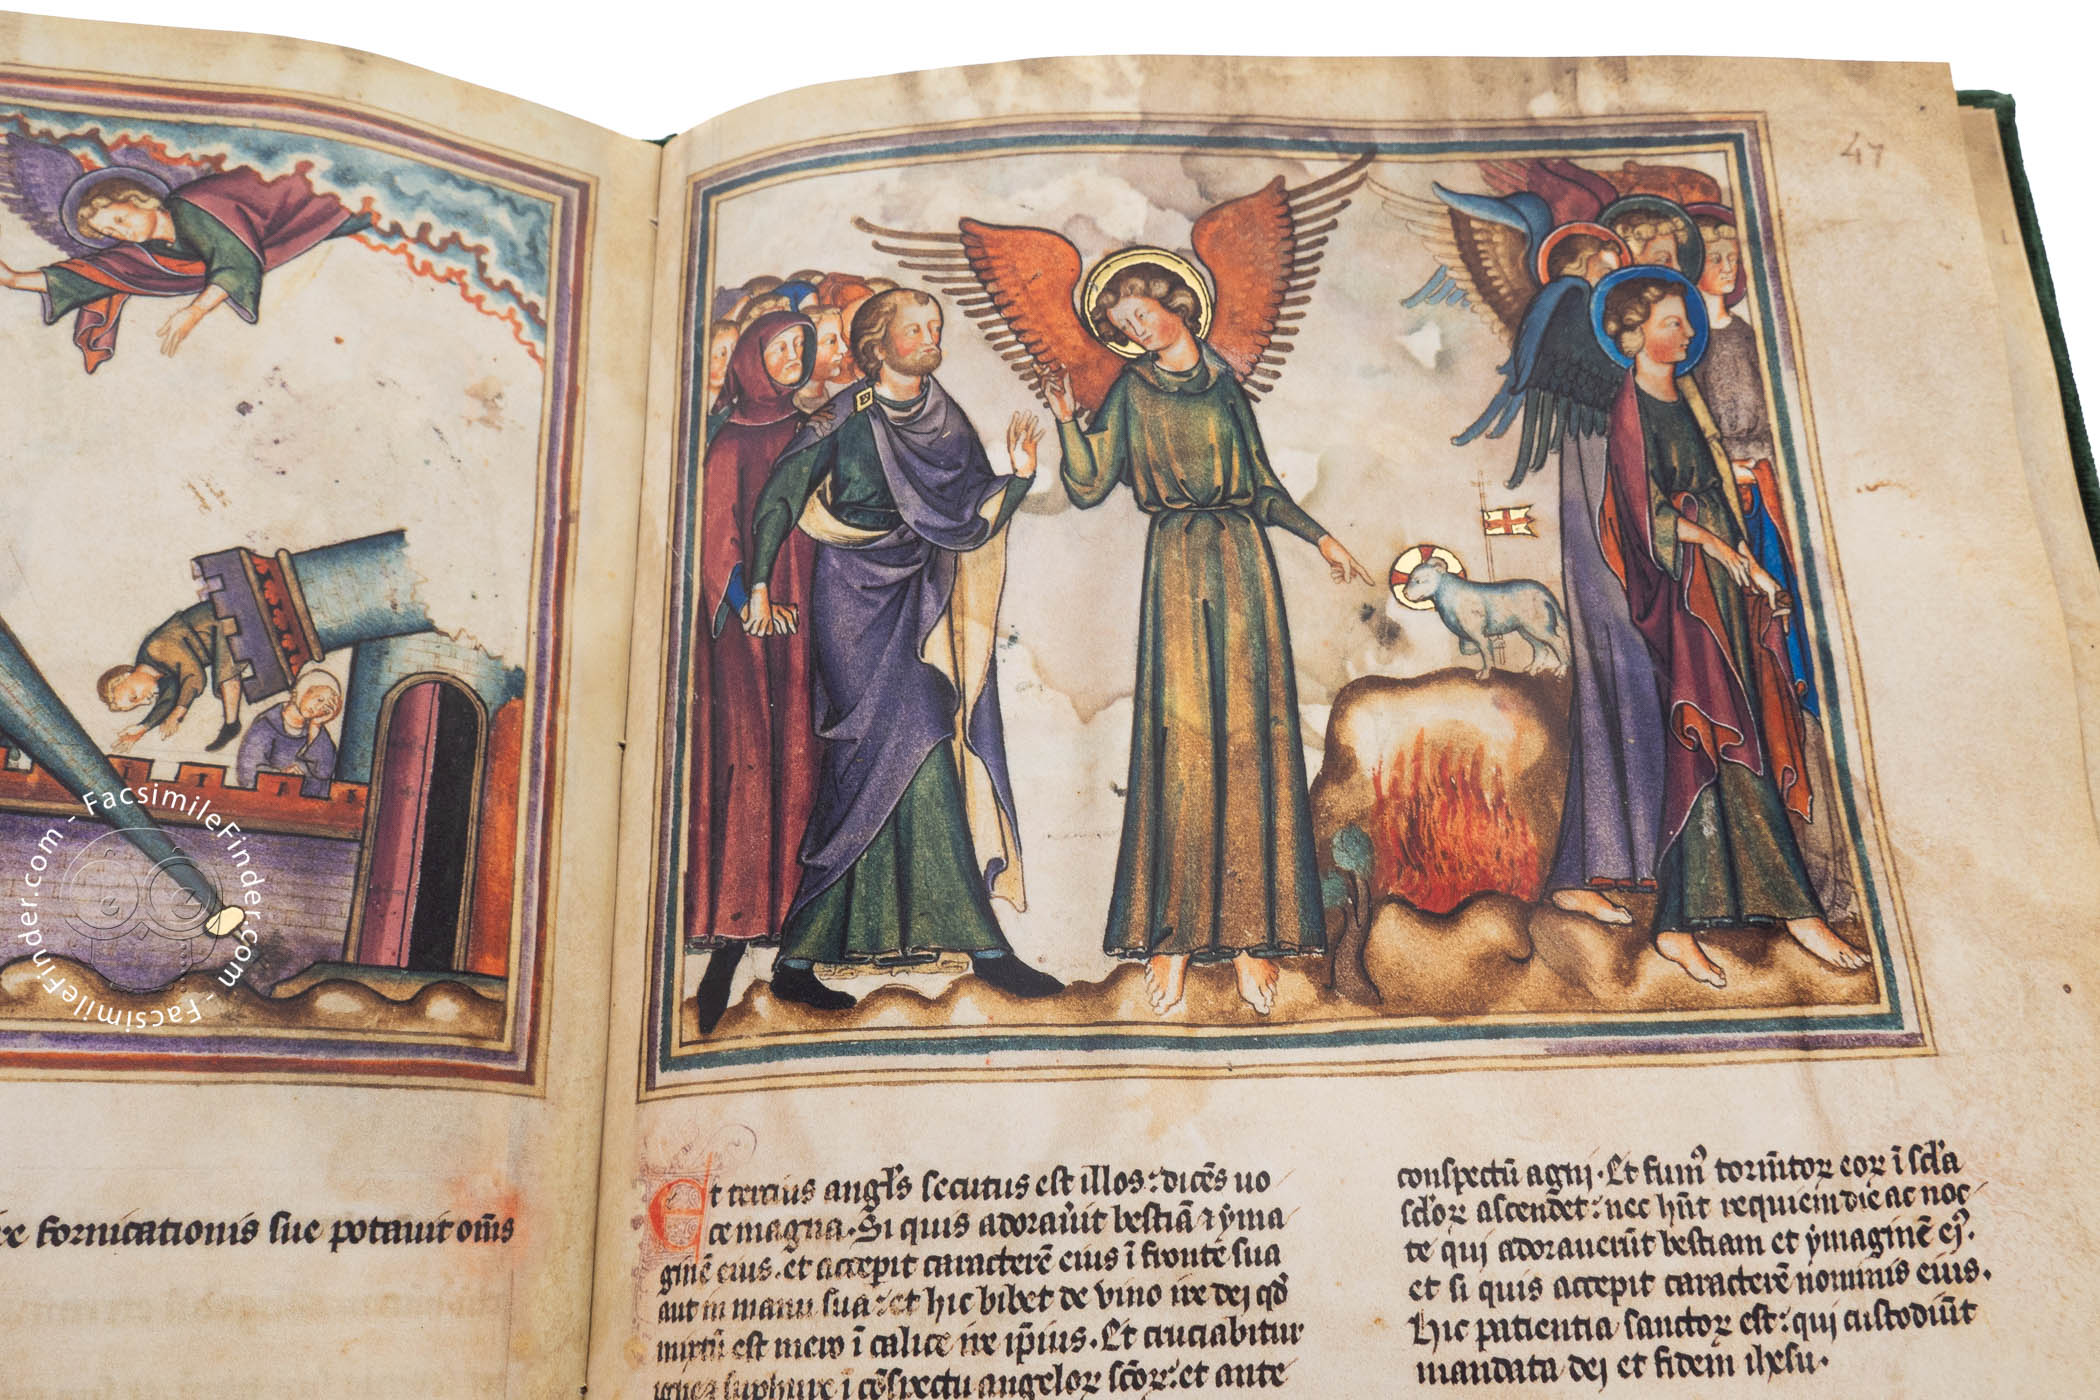 47
re fornicationis sue potauit om̄s
Et tercius angl̄s secutus est illos: dicēs uo
ce magna. Si quis adorau̇it bestiā ⁊ ẏma
ginē eius. et accepit caracterē eius ī fronte sua
aut in manu sua: et hic bibet de vino ire dei qđ
mixtū est mero ī calice ire ip̄ius. Et cruciabitur
igne ⁊ sulphure ī cōspectu angeloꝝ sc̄oꝝ: et ante
conspectū agni. Et fum᷒ tormētoꝝ eoꝝ ī sc̄la
sc̄loꝝ ascendet: nec hn̄t requiem die ac noc
te qui adorauerūt bestiam et ẏmaginē ei᷒.
et si quis accepit caracterē nominis eius.
Hic patientia sanctoꝝ est: qui custodiūt
mandata dei et fidem ihesu.
FacsimileFinder.com - FacsimileFinder.com -